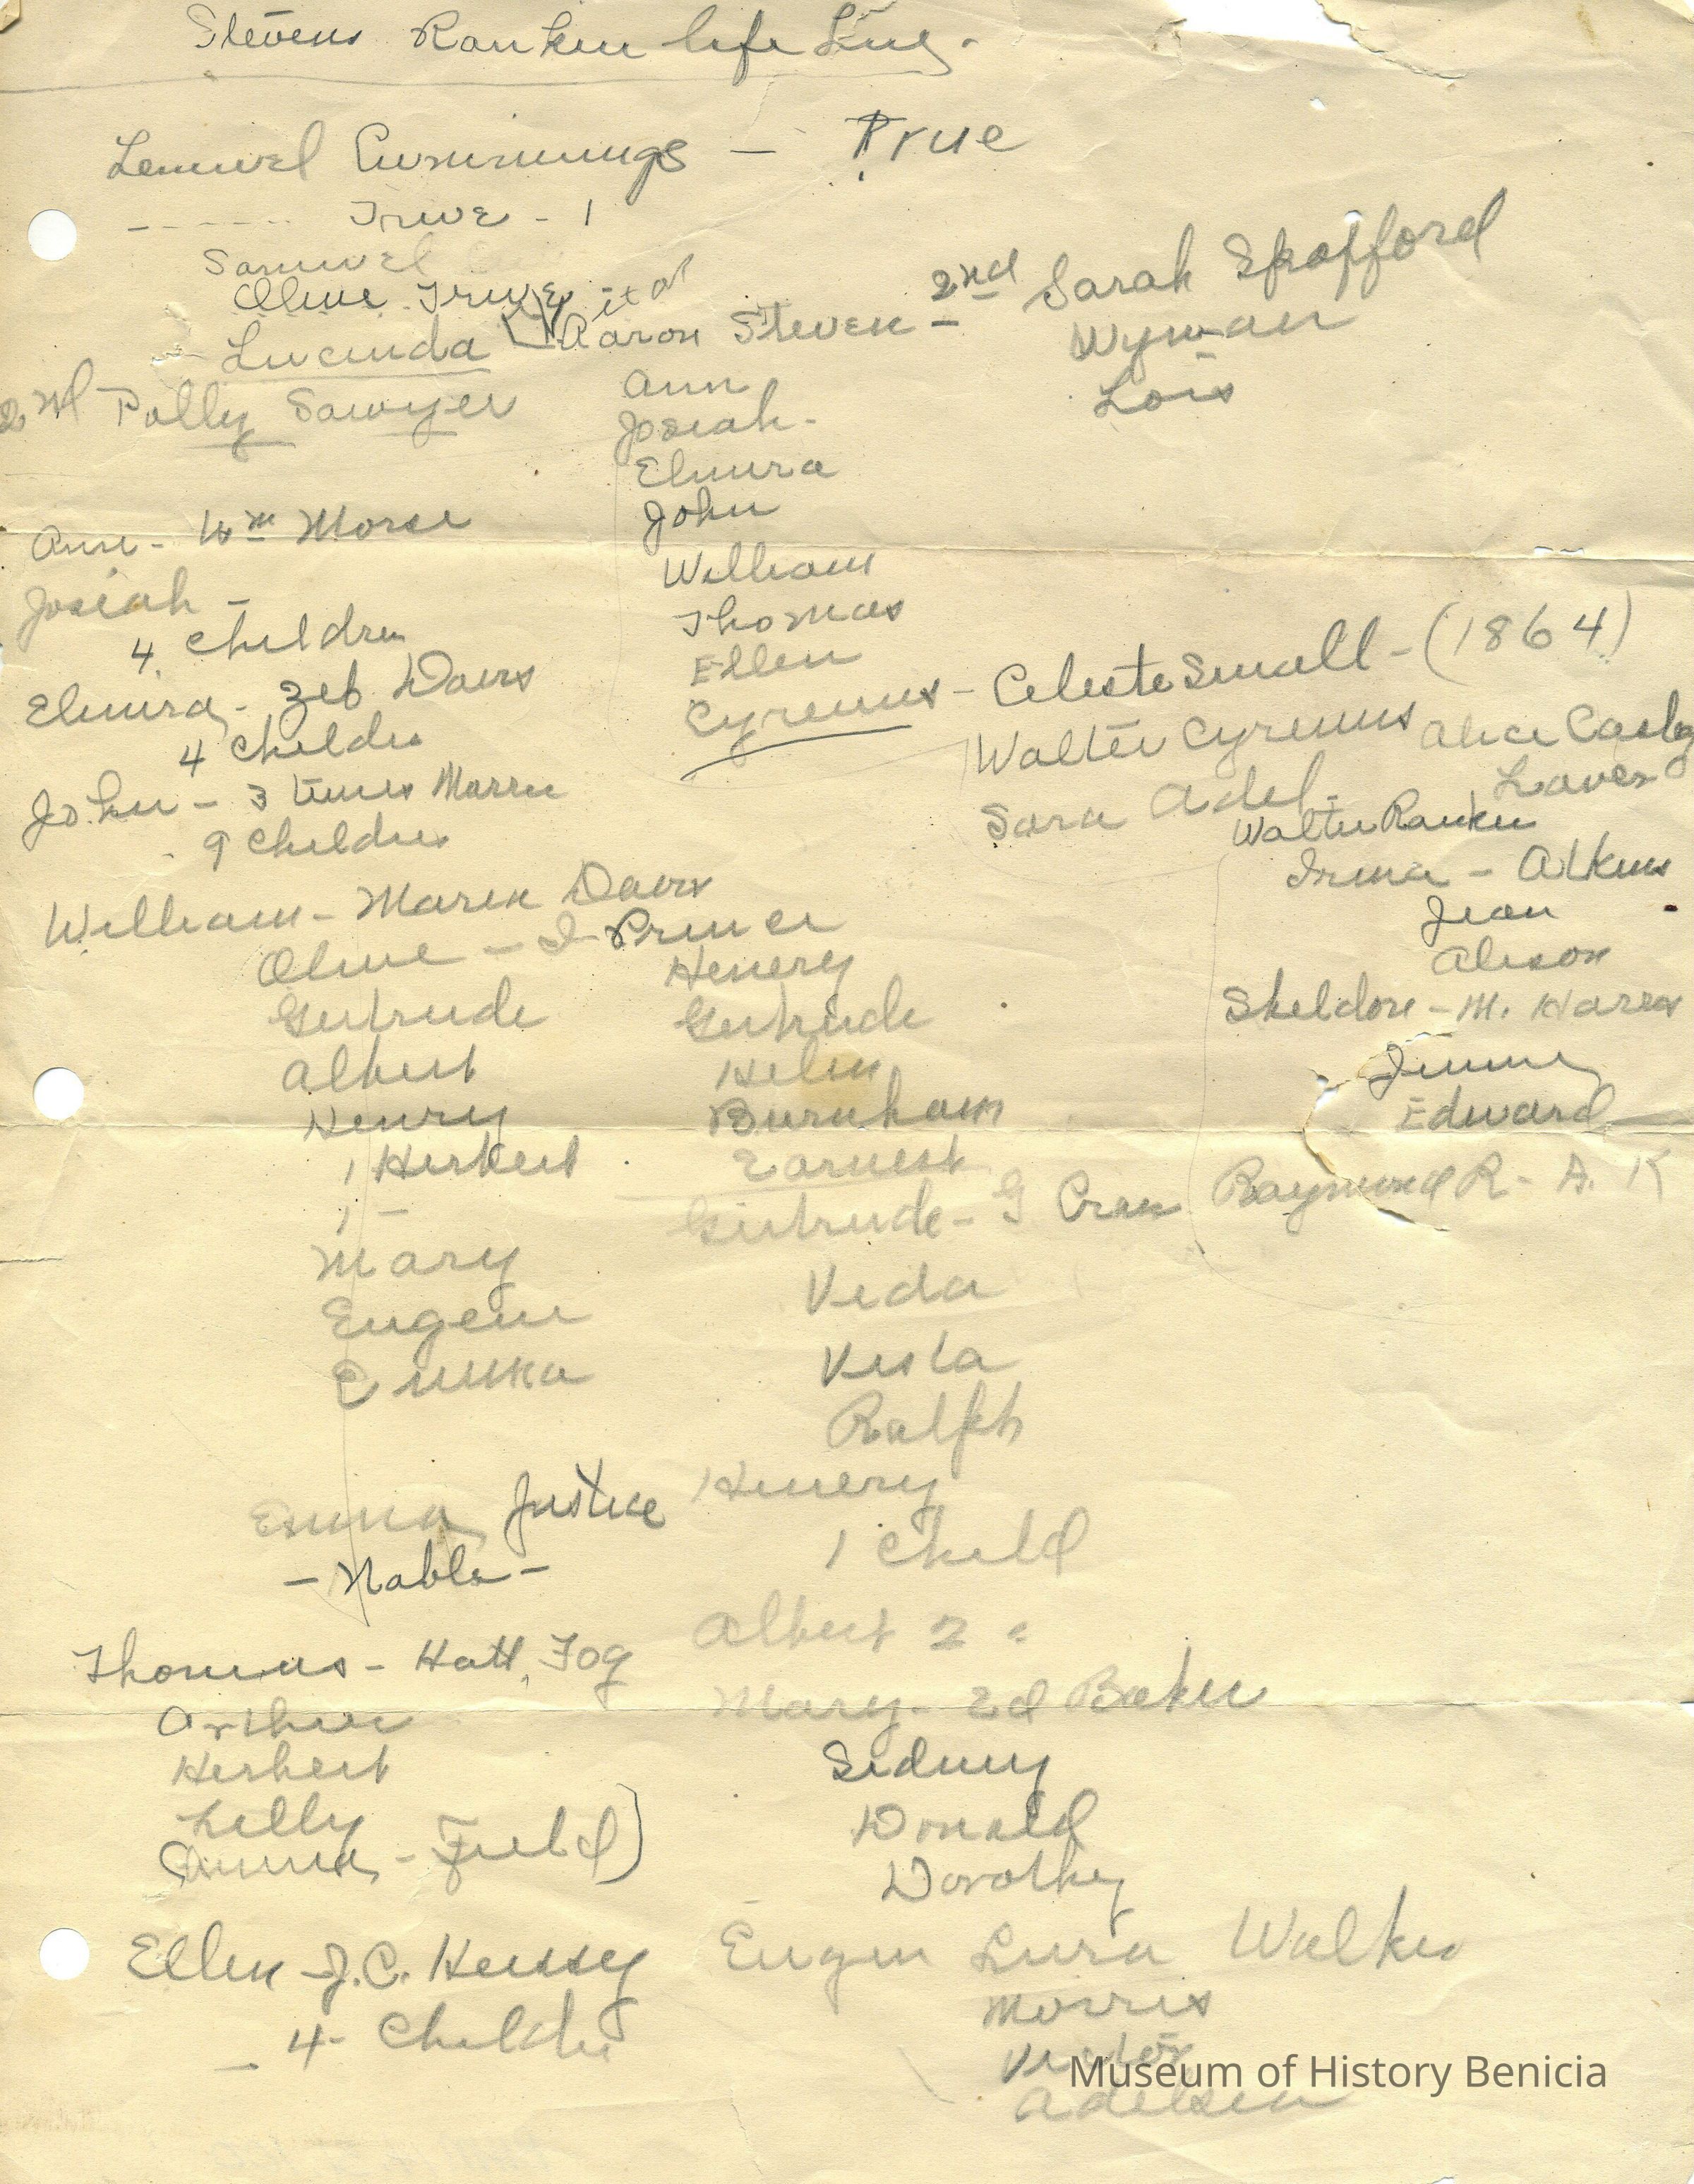 Stevens Rankin life Line.
Lemuel Cummings — True
------ True - 1
Samuel
Olive True
Lucinda - Aaron Steven - 2nd Sarah Spofford
Wyman
Lois
2nd Polly Sawyer
Ann
Josiah -
Elmira
John
William
Thomas
Ellen
Cyrenus - Celeste Small - (1864)
Walter Cyrenus Alice
Sara Adel -
Walter Rankin
Irma - Atkins
Jean
Alison
Sheldon - M. Harris
Jimmy
Edward
Raymond R - A. K
Ann - Wm Morse
Josiah -
4 Children
Elmira - Zeb Davis
4 Childre
John - 3 times Marrie
9 Childre
William - Maria Davis
Olive - I - Prince
Gertrude
Albert
Henry
1 Herbert
1 -
Mary
Eugene
Emma
Henery
Gertrude
Helen
Burnham
Earnest
Gertrude - G Cram
Veda
Vesta
Ralph
Henery
1 Child
Emma Justice
- Noble -
Albert 2 "
Mary - Ed Baker
Sidney
Donald
Dorothy
Thomas - Hatt. Fog
Arthur
Herbert
Lilly
Emma - Field)
Ellen - J.C. Hussey
- 4 - Childre
Eugen Lura Walker
Morris
Victor
Adelsen
Museum of History Benicia